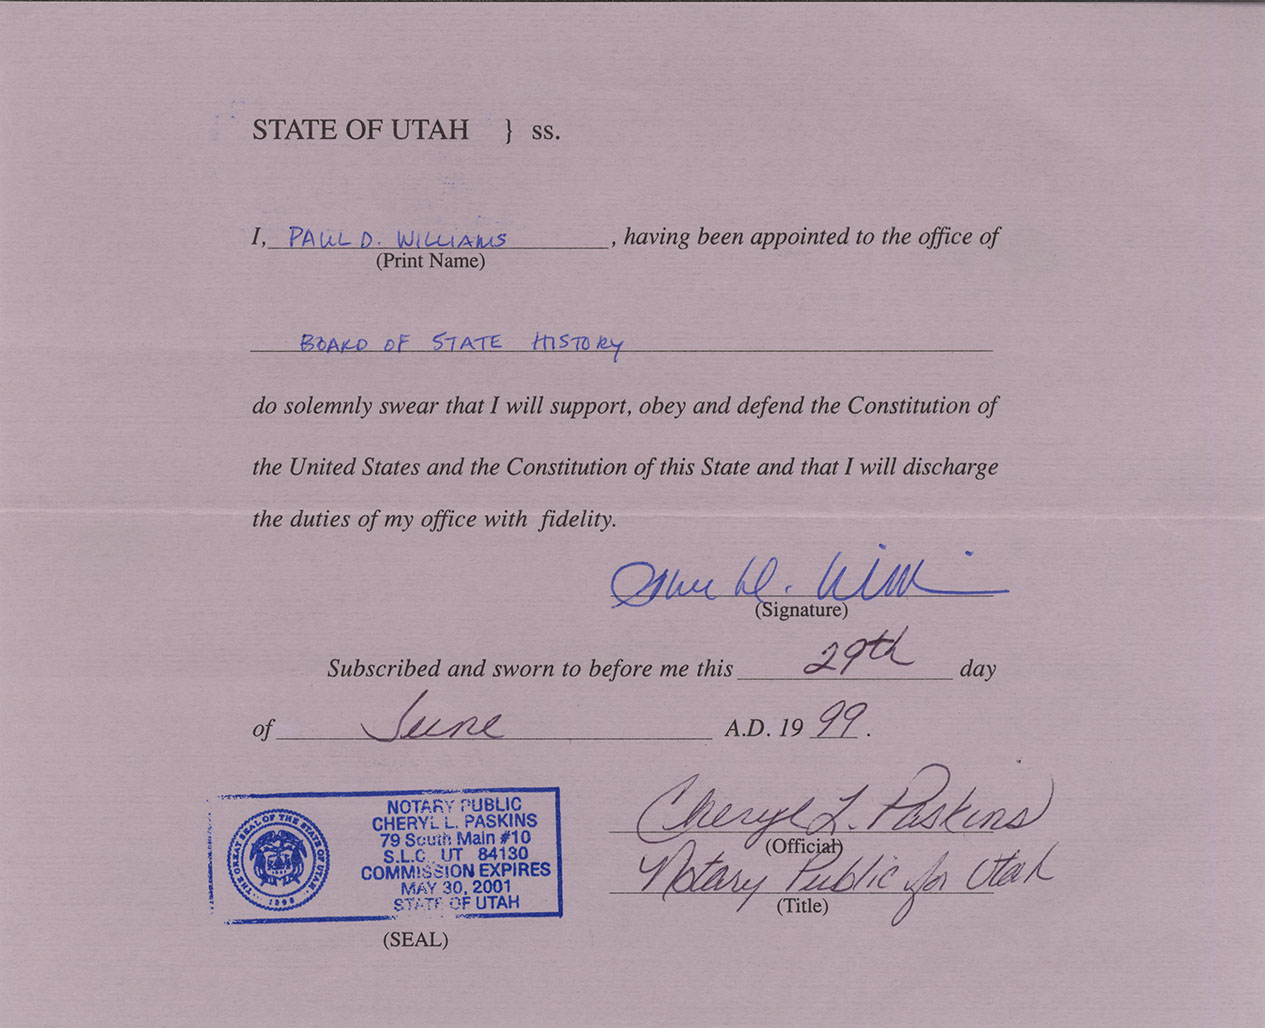 STATE OF UTAH } ss.
I, PAUL D. WILLIAMS, having been appointed to the office of
(Print Name)
BOARD OF STATE HISTORY
do solemnly swear that I will support, obey and defend the Constitution of
the United States and the Constitution of this State and that I will discharge
the duties of my office with fidelity.
(Signature)
Subscribed and sworn to before me this 29th day
of June A.D. 1999.
Cheryl L. Paskins
(Official)
Notary Public for Utah
(Title)
THE GREAT SEAL OF THE STATE OF UTAH
1896
NOTARY PUBLIC
CHERYL L. PASKINS
79 South Main #10
S.L.C. UT 84130
COMMISSION EXPIRES
MAY 30, 2001
STATE OF UTAH
(SEAL)